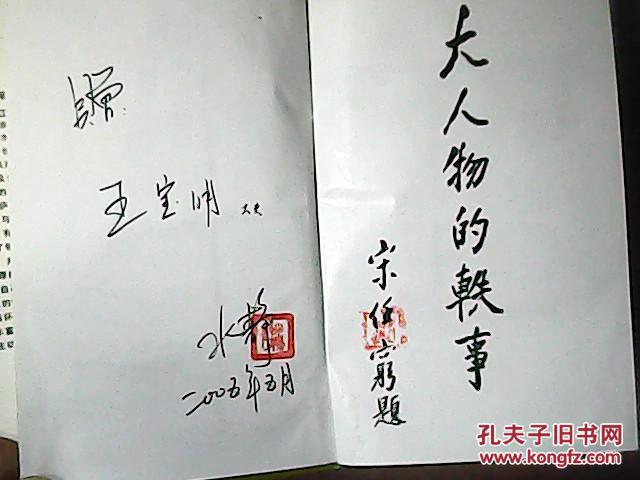 赠:
王宝明 大夫
水静
二00五年五月
大人物的轶事
宋任穷题
孔夫子旧书网
www.kongfz.com